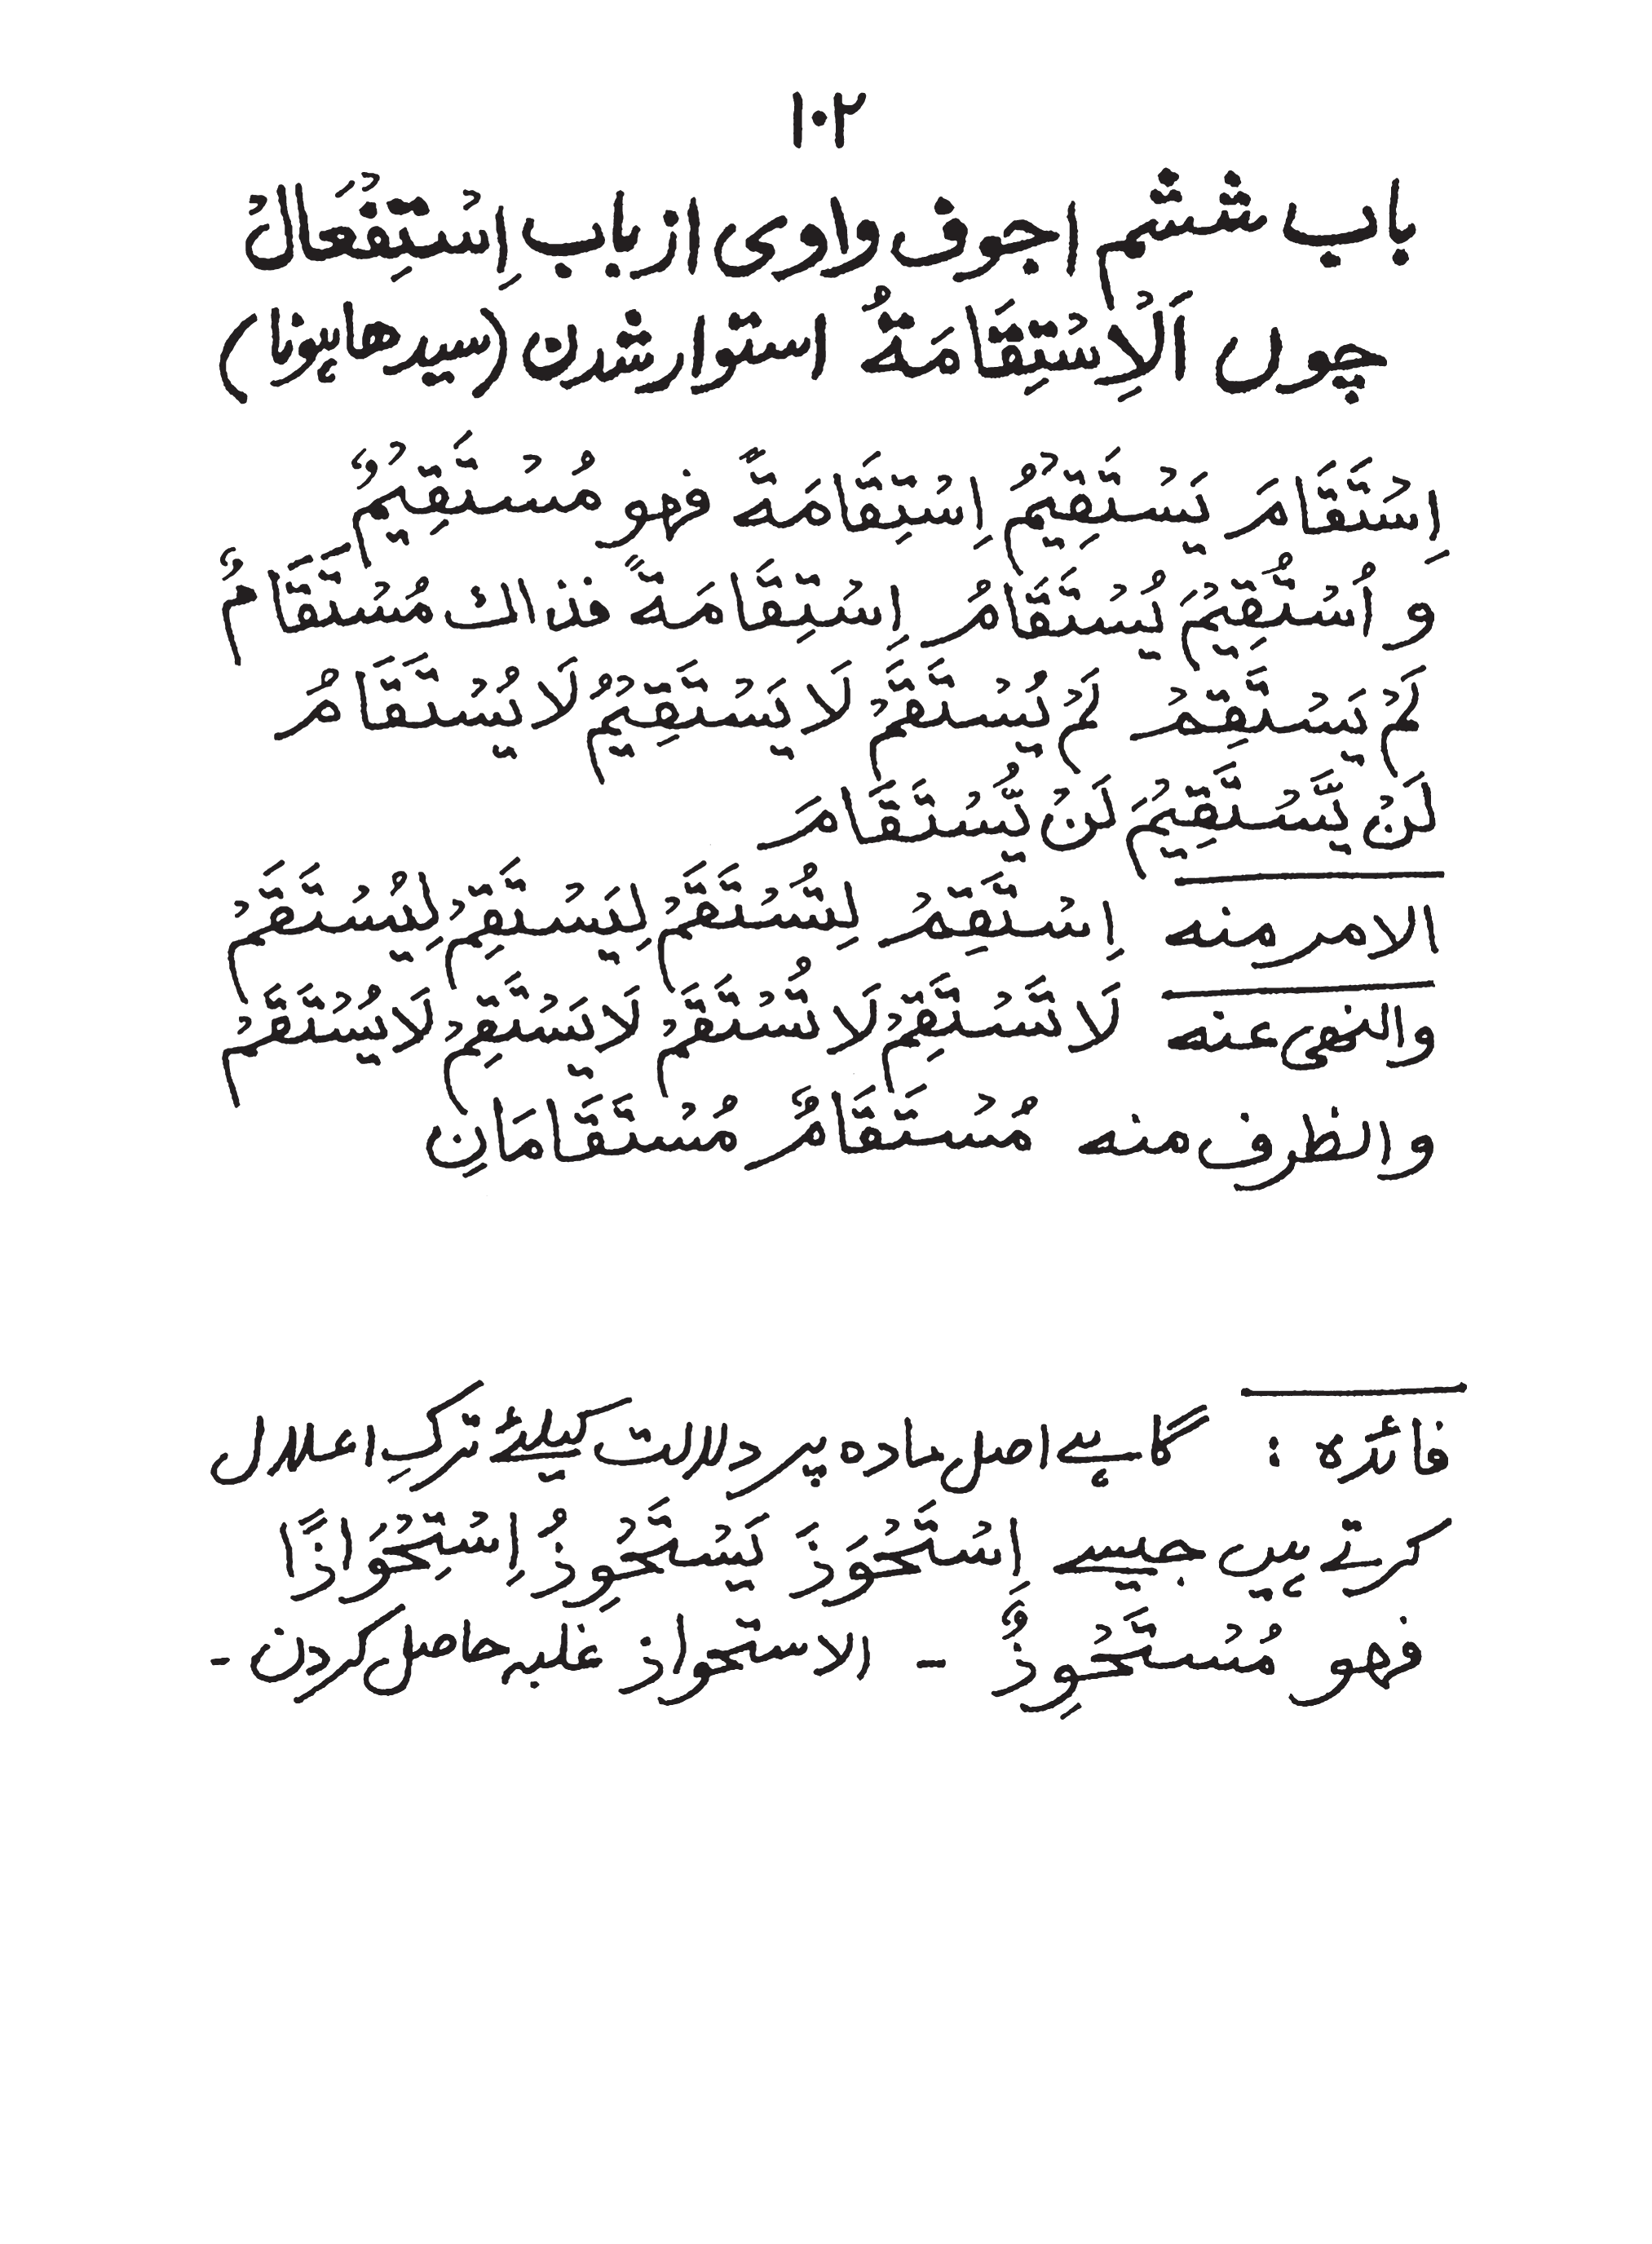 ۱۰۲
باب ششم اجوف واوی از باب اِسْتِفْعَالْ
چوں اَلْاِسْتِقَامَةُ استوار شدن (سیدھا ہونا)
اِسْتَقَامَ يَسْتَقِيْمُ اِسْتِقَامَةً فهو مُسْتَقِيْمٌ
و اُسْتُقِيْمَ يُسْتَقَامُ اِسْتِقَامَةً فذاك مُسْتَقَامٌ
لَمْ يَسْتَقِمْ لَمْ يُسْتَقَمْ لَا يَسْتَقِيْمُ لَا يُسْتَقَامُ
لَنْ يَّسْتَقِيْمَ لَنْ يُّسْتَقَامَ
الامر منه اِسْتَقِمْ لِتُسْتَقَمْ لِيَسْتَقِمْ لِيُسْتَقَمْ
والنهى عنه لَا تَسْتَقِمْ لَا تُسْتَقَمْ لَا يَسْتَقِمْ لَا يُسْتَقَمْ
والظرف منه مُسْتَقَامٌ مُسْتَقَامَانِ
فائدہ : گاہے اصل مادہ پر دلالت کیلئے ترکِ اعلال
کرتے ہیں جیسے اِسْتَحْوَذَ يَسْتَحْوِذُ اِسْتِحْوَاذًا
فهو مُسْتَحْوِذٌ - الاستحواذ غلبہ حاصل کردن -